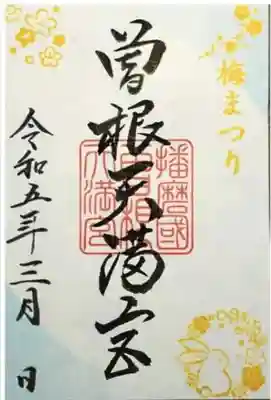 梅まつり
曽根天満宮
播磨國
曽根
天満宮
令和五年三月 日